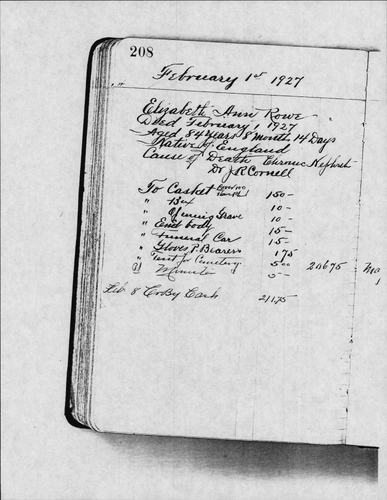 208
February 1st 1927
Elizabeth Ann Rowe
Died February 1, 1927
Aged 84 Years 8 Months 14 Days
Native of England
Cause of Death Chronic Nephrit
Dr J R Cornell
To Casket 150-
" Box 10-
" Grave 10-
" Emb body 15-
" Funeral Car 15-
" Gloves P. Bearers 175
" Tent for Cemetery 500 20675
" Minister 5-
Feb 8 Cr By Cash 21175